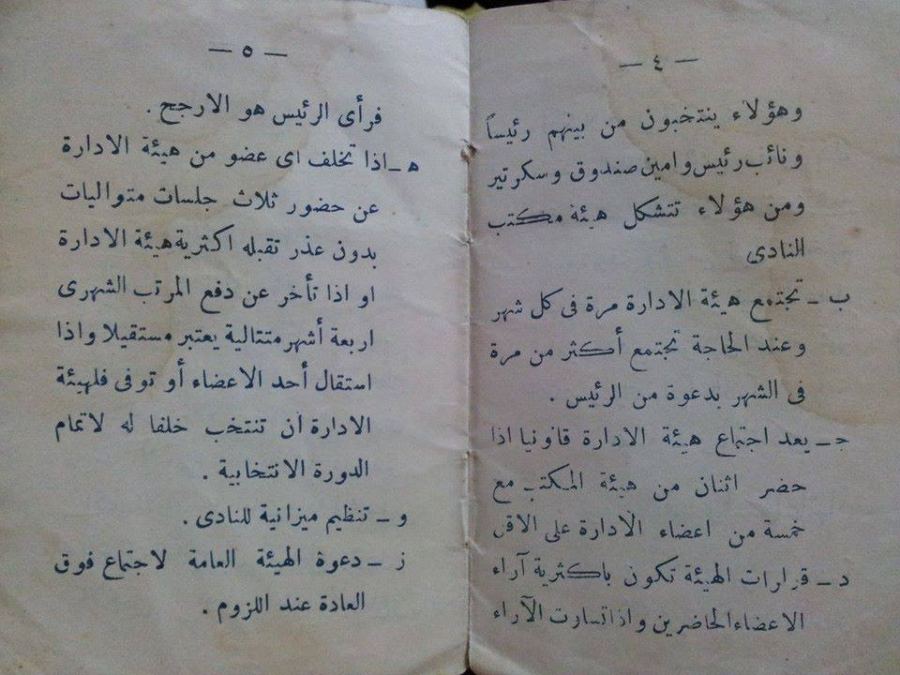 — ٤ —
وهؤلاء ينتخبون من بينهم رئيساً
ونائب رئيس وامين صندوق وسكرتير
ومن هؤلاء تتشكل هيئة مكتب
النادى
ب ـ تجتمع هيئة الادارة مرة فى كل شهر
وعند الحاجة تجتمع أكثر من مرة
فى الشهر بدعوة من الرئيس .
جـ ـ يعد اجتماع هيئة الادارة قانونيا اذا
حضر اثنان من هيئة المكتب مع
خمسة من اعضاء الادارة على الاقل
د ـ قرارات الهيئة تكون باكثرية آراء
الاعضاء الحاضرين واذا تساوت الآراء
— ٥ —
فرأى الرئيس هو الارجح .
هـ ـ اذا تخلف اى عضو من هيئة الادارة
عن حضور ثلاث جلسات متواليات
بدون عذر تقبله اكثرية هيئة الادارة
او اذا تأخر عن دفع المرتب الشهرى
اربعة أشهر متتالية يعتبر مستقيلا واذا
استقال أحد الاعضاء أو توفى فلهيئة
الادارة ان تنتخب خلفا له لاتمام
الدورة الانتخابية .
و ـ تنظيم ميزانية للنادى .
ز ـ دعوة الهيئة العامة لاجتماع فوق
العادة عند اللزوم .